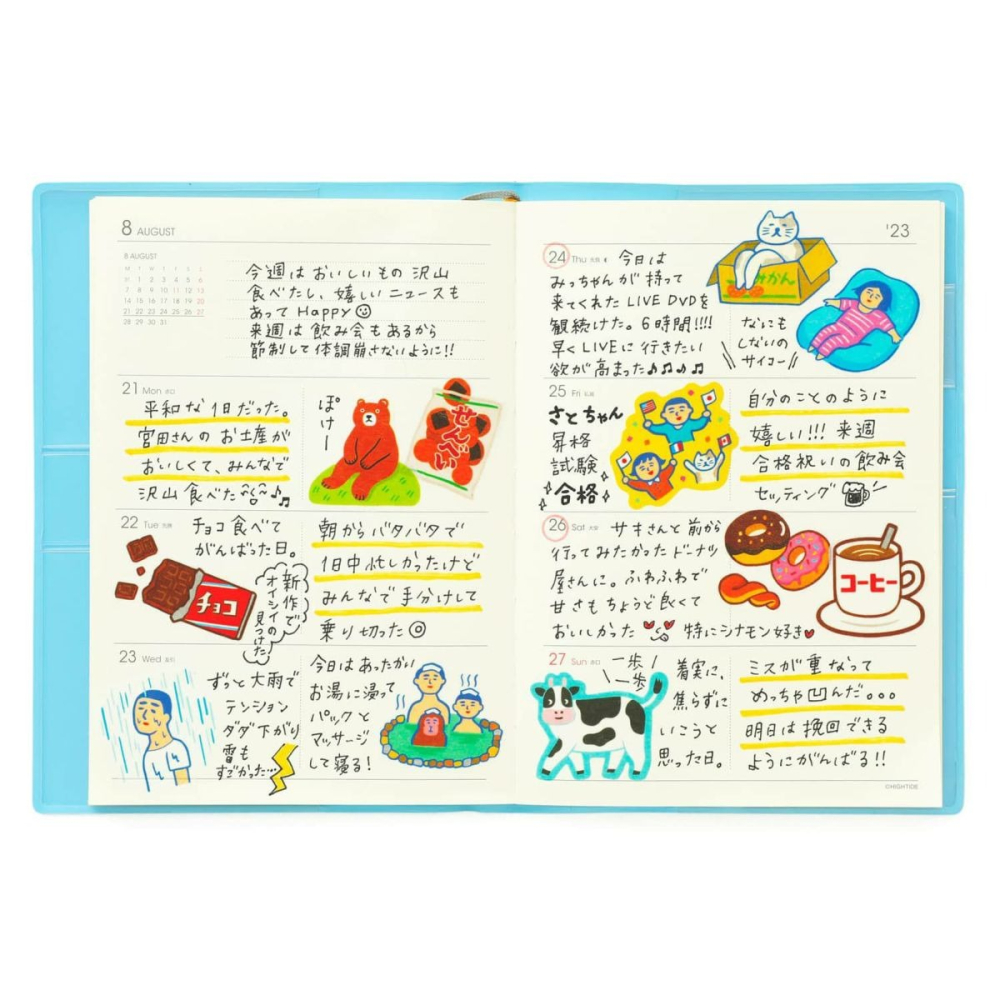 8 AUGUST
8 AUGUST
M T W T F S S
31 1 2 3 4 5 6
7 8 9 10 11 12 13
14 15 16 17 18 19 20
21 22 23 24 25 26 27
28 29 30 31
今週はおいしいもの沢山
食べたし、嬉しいニュースも
あってHappy☺
来週は飲み会もあるから
節制して体調崩さないように!!
21 Mon
平和な1日だった。
宮田さんのお土産が
おいしくて、みんなで
沢山食べた♪♫
ぽけー
せんべい
22 Tue
チョコ食べて
がんばった日。
チョコ
新作で
オイシイの
見つけた
朝からバタバタで
1日中忙しかったけど
みんなで手分けして
乗り切った◎
23 Wed
ずっと大雨で
テンション
ダダ下がり
雷も
すごかった…
今日はあったかい
お湯に浸って
パックと
マッサージ
して寝る!
'23
24 Thu
今日は
みっちゃんが持って
来てくれたLIVE DVDを
観続けた。6時間!!!!
早くLIVEに行きたい
欲が高まった♪♪♪♫
みかん
なにも
しないの
サイコー
25 Fri
さとちゃん
昇格
試験
合格
自分のことのように
嬉しい!!! 来週
合格祝いの飲み会
セッティング
26 Sat
サキさんと前から
行ってみたかったドーナツ
屋さんに。ふわふわで
甘さもちょうど良くて
おいしかった 特にシナモン好き♥
コーヒー
27 Sun
一歩
一歩
着実に、
焦らずに
いこうと
思った日。
ミスが重なって
めっちゃ凹んだ。。。
明日は挽回できる
ようにがんばる!!
©HIGHTIDE